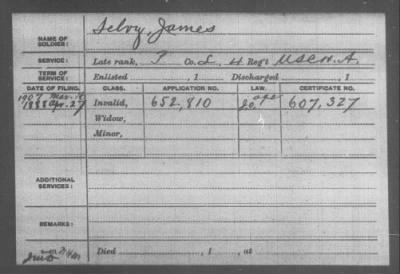 NAME OF SOLDIER: Selvy, James
SERVICE: Late rank, P Co. L, 4 Reg't U.S.C.H.A.
TERM OF SERVICE: Enlisted , 1 Discharged , 1
DATE OF FILING. CLASS. APPLICATION NO. LAW. CERTIFICATE NO.
1907 Mar.
1888 Apr. 27 Invalid, 652,810 607,327
Widow,
Minor,
ADDITIONAL SERVICES:
REMARKS:
Died , 1 , at